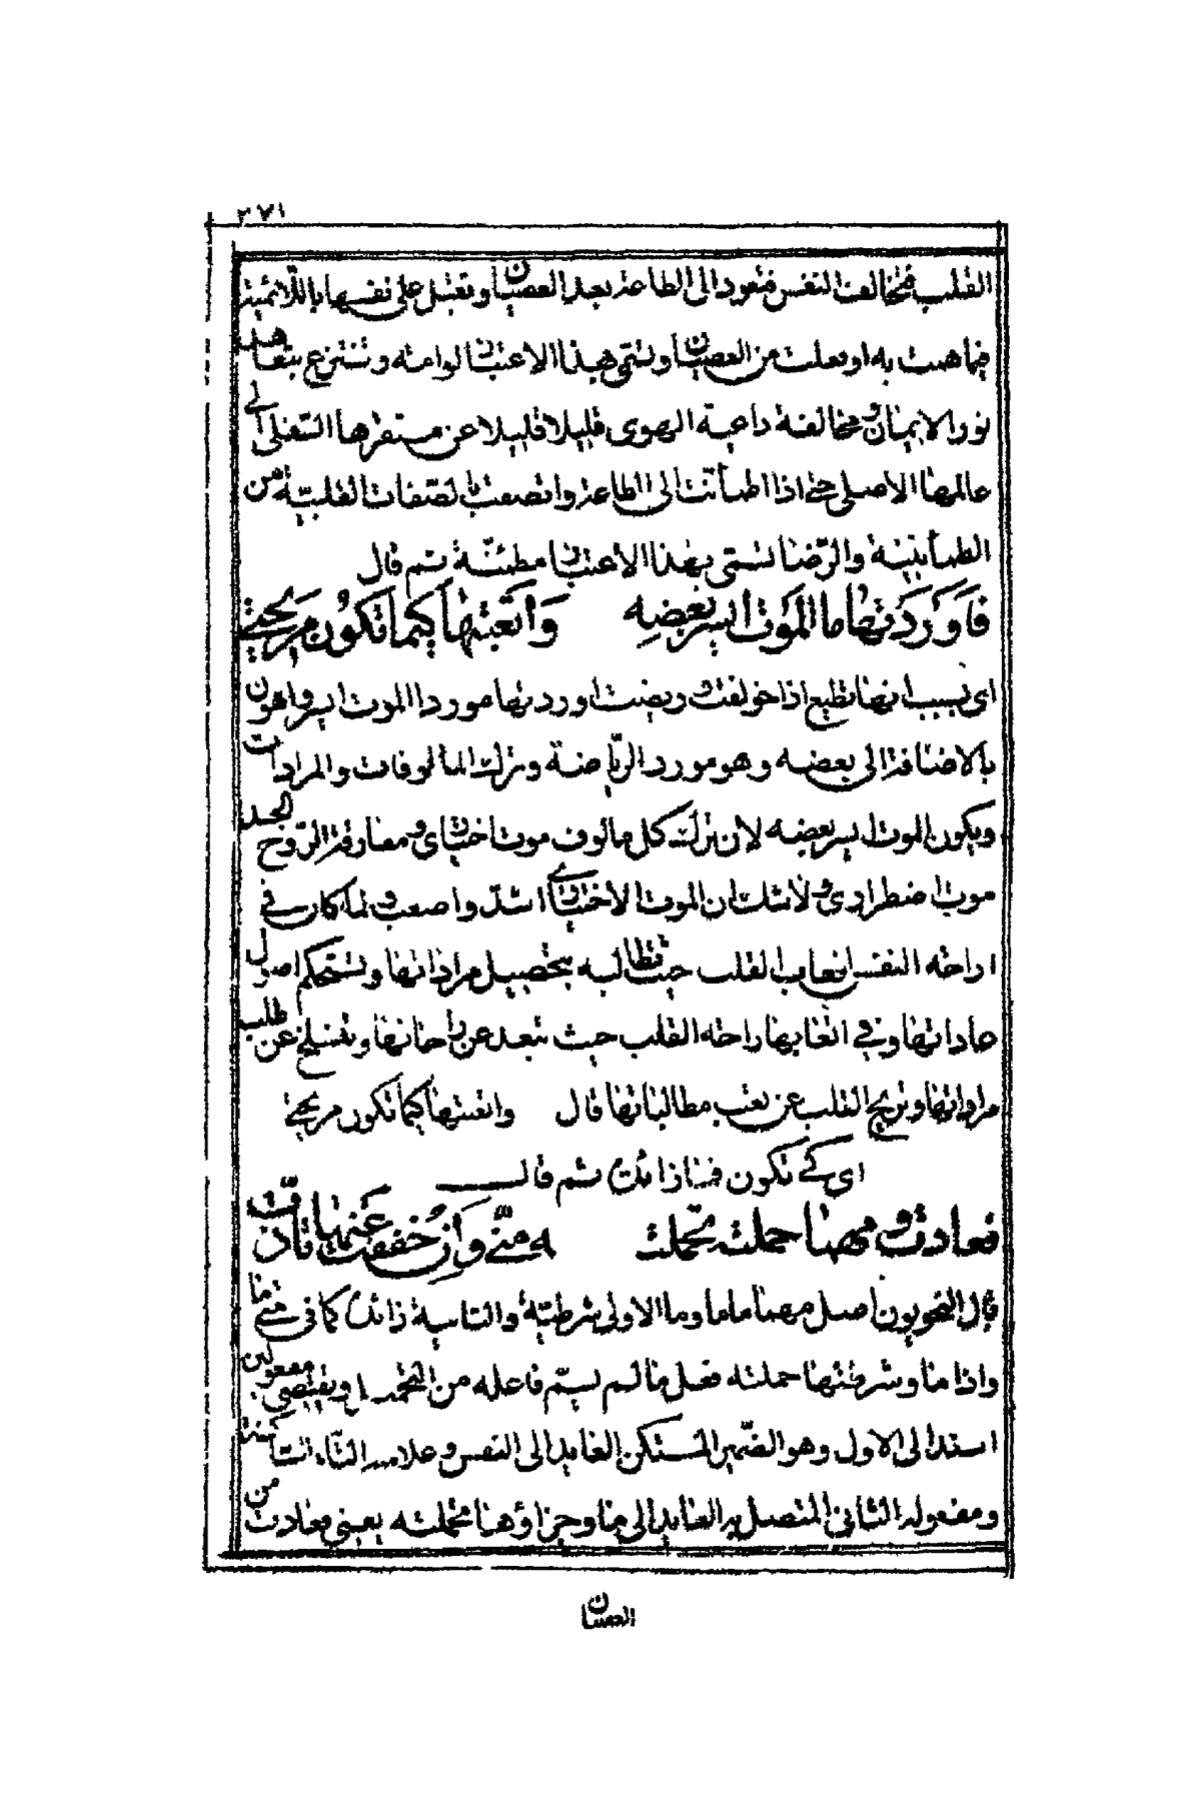 ٣٧١
القلب فتخالف النفس فتعود الى الطاعة بعد العصيان وتقبل على نفسها باللائمة
فيما همت به او فعلت من العصيان وتسمى بهذا الاعتبار لوامة وتنتزع بتعاهد
نور الايمان ومخالفة داعية الهوى قليلا قليلا عن مستقرها السفلى الى
عالمها الاصلى حتى اذا اطمأنت الى الطاعة واتصفت بالصفات القلبية من
الطمأنينة والرّضا تسمى بهذا الاعتبار مطمئنّة ثم قال
فَاَوْرَدْتُهَا ما الْمَوْتُ أيسر بَعْضِهِ وَأتْعَبْتُهَا كَيْما تَكُون مريحتى
اى بسبب انها تطيع اذا خولفت وريضت اوردتها موردا الموت ايسر واهون
بالاضافة الى بعضه وهو مورد الرّياضة وترك المألوفات والمرادات
ويكون الموت ايسر بعضه لان ترك كل مالوف موت اختيارى ومفارقة الرّوح الجسد
موت اضطرارى ولا شك ان الموت الاختيارى اشدّ واصعب ولما كان فى
اراحة النفس اتعاب القلب حيث تطالبه بتحصيل مراداتها وتستحكم اصول
عاداتها وفى اتعابها راحة القلب حيث تبعد عن راحاتها وتنسلخ عن طلب
مراداتها وتريح القلب عن تعب مطالباتها قال واتعبتها كيما تكون مريحتى
اى كى تكون فما زائدة ثم قال
فعادت ومهما حملته تحملته ـه منّى وَاِنْ خُفّفت عَنها تأذّت
قال النحويون اصل مهما ماما وما الاولى شرطيّة والثانية زائدة كما فى متى ما
واذا ما وشرطها حملته فعل ما لم يسمّ فاعله من التحميل ويقتضى مفعولين
اسند الى الاول وهو الضّمير المستكن العايد الى النفس وعلامته التّاء الساكنة
ومفعوله الثانى المتصل به العايد الى ما وجزاؤها تحملته يعنى فعادت من
العصيان